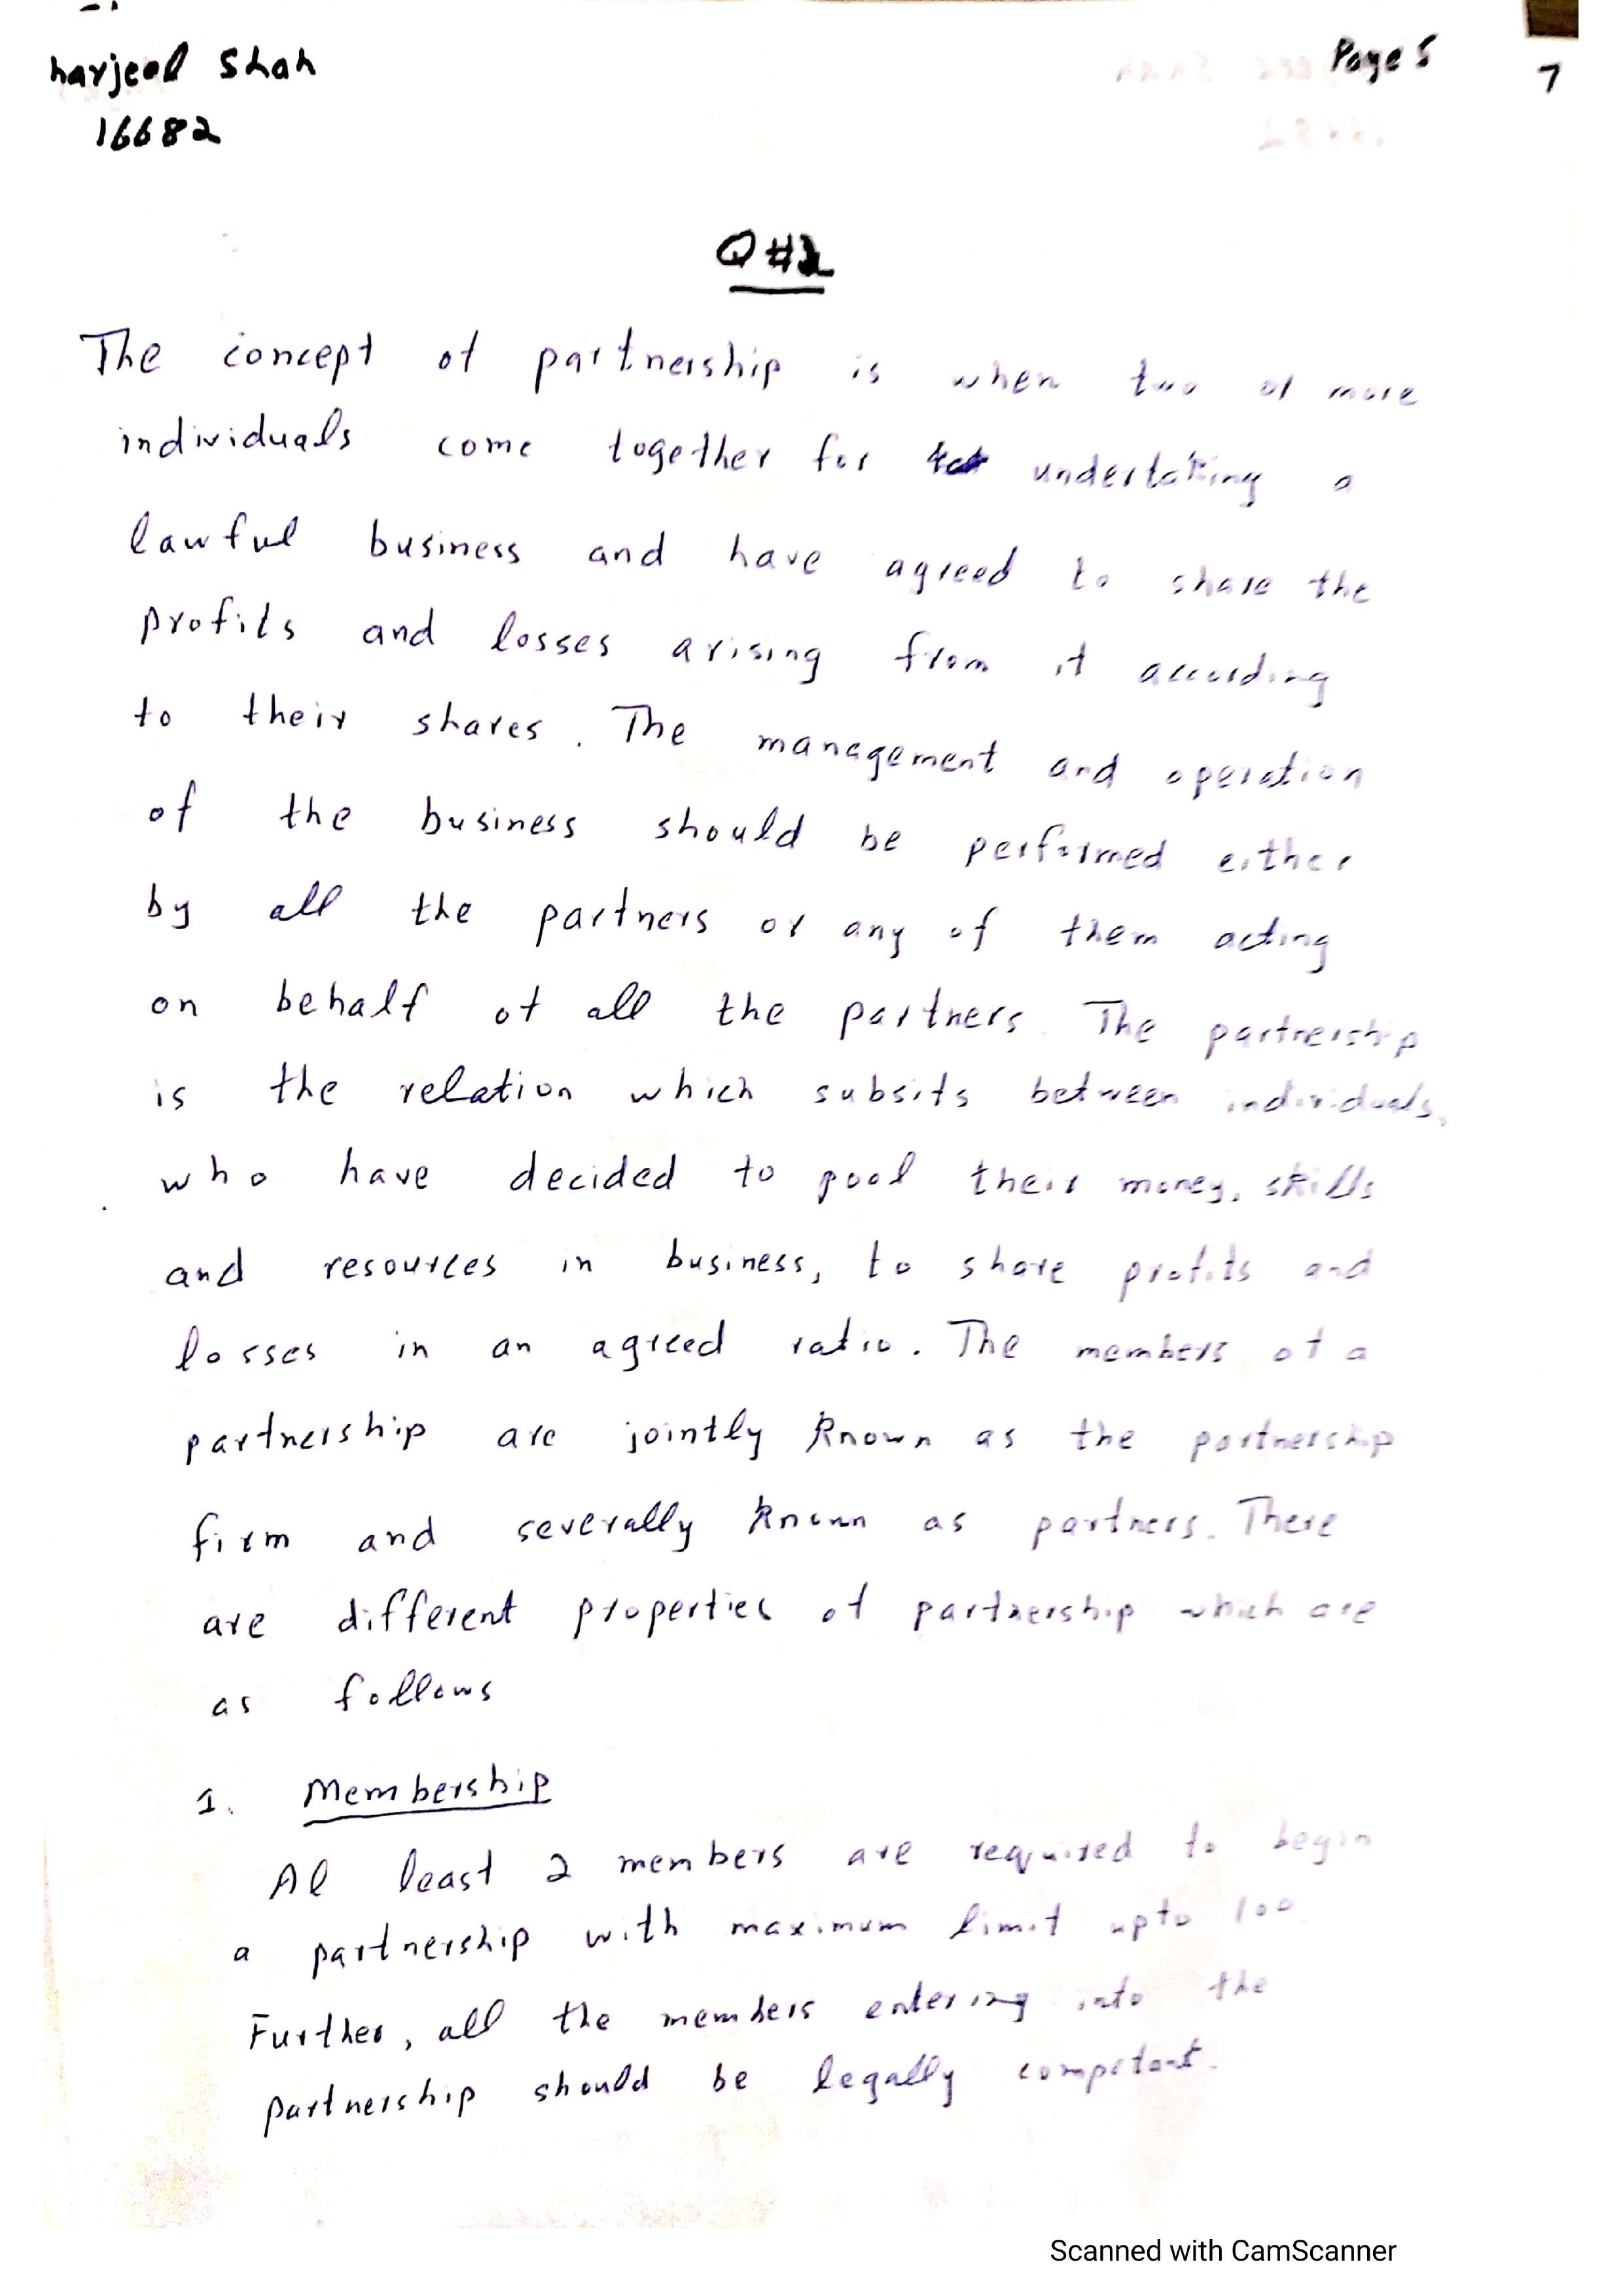 harjeel Shah
Page 5
7
16682
Q#2
The concept of partnership is when two or more
individuals come together for undertaking a
lawful business and have agreed to share the
profits and losses arising from it according
to their shares. The management and operation
of the business should be performed either
by all the partners or any of them acting
on behalf of all the partners. The partnership
is the relation which subsits between individuals,
who have decided to pool their money, skills
and resources in business, to share profits and
losses in an agreed ratio. The members of a
partnership are jointly known as the partnership
firm and severally known as partners. There
are different properties of partnership which are
as follows
1. Membership
At least 2 members are required to begin
a partnership with maximum limit upto 100.
Further, all the members entering into the
partnership should be legally competant.
Scanned with CamScanner